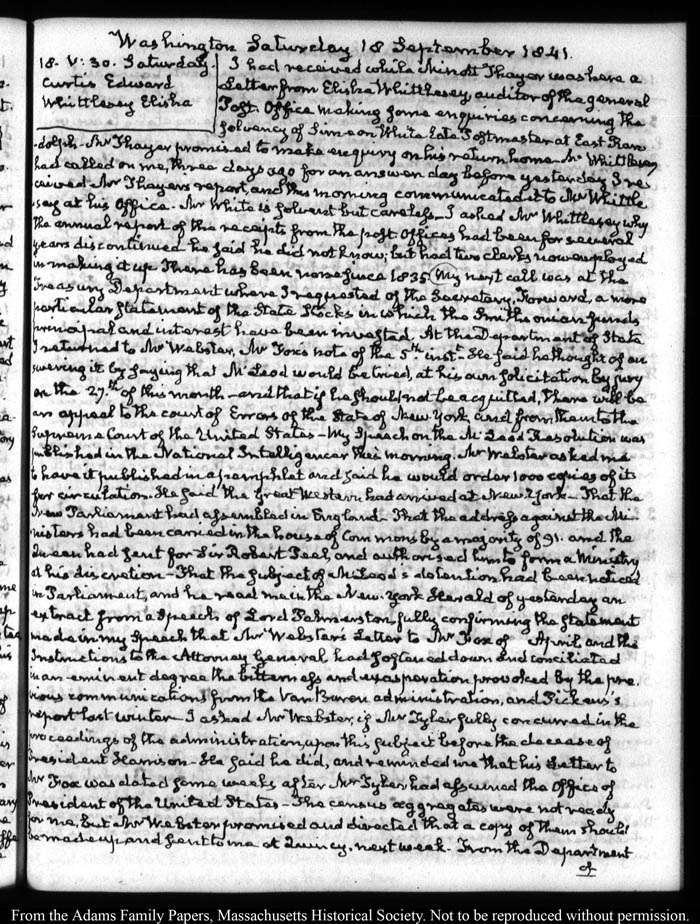 Washington Saturday 18 September 1841.
18. V:30. Saturday
Curtis Edward
Whittlesey Elisha
I had received while Minott Thayer was here a
Letter from Elisha Whittlesey, auditor of the general
Post-Office making some enquiries concerning the
solvency of Simeon White late Postmaster at East Ran-
dolph- Mr Thayer promised to make enquiry on his return home- Mr Whittlesey
had called on me, three days ago for an answer, day before yesterday I re-
ceived Mr Thayer's report, and this morning communicated it to Mr Whittle
sey at his Office. Mr White is solvent but careless- I asked Mr Whittlesey why
the annual report of the receipts from the post Offices had been for several
years discontinued he said he did not know; but had two clerks now employed
in making it up. There has been none since 1835. My next call was at the
Treasury Department where I requested of the Secretary, Forward, a more
particular statement of the State Stocks in which the Smithsonian funds
principal and interest have been invested. At the Department of State
I returned to Mr Webster, Mr Fox's note of the 5th inst.t He said he thought of an
swering it by saying that McLeod would be tried, at his own solicitation by jury
on the 27.th of this month- and that if he should not be acquitted, there will be
an appeal to the court of Errors of the State of New York, and from them to the
Supreme Court of the United States- My Speech on the McLeod Resolution was
published in the National Intelligencer this morning. Mr Webster asked me
to have it published in a pamphlet and said he would order 1000 copies of it
for circulation. He said the Great Western had arrived at New York- That the
New Parliament had assembled in England- That the address against the Mi-
nisters had been carried in the house of Commons by a majority of 91. and the
Queen had sent for Sir Robert Peel, and authorised him to form a Ministry
at his discretion- That the subject of McLeod's detention had been noticed
in Parliament, and he read me in the New-York Herald of yesterday an
extract from a Speech of Lord Palmerston, fully confirming the statement
made in my Speech that Mr Webster's Letter to Mr Fox of April and the
Instructions to the Attorney General had softened down and conciliated
in an eminent degree the bitterness and exasperation provoked by the pre-
vious communications from the Van Buren administration, and Pickens's
report last winter- I asked Mr Webster, if Mr Tyler fully concurred in the
proceedings of the administration, upon this subject before the decease of
President Harrison- He said he did, and reminded me that his Letter to
Mr Fox was dated some weeks after Mr Tyler had assumed the Office of
President of the United States- The census aggregates were not ready
for me, but Mr Webster promised and directed that a copy of them should
be made up and sent to me at Quincy, next week. From the Department
of
From the Adams Family Papers, Massachusetts Historical Society. Not to be reproduced without permission.